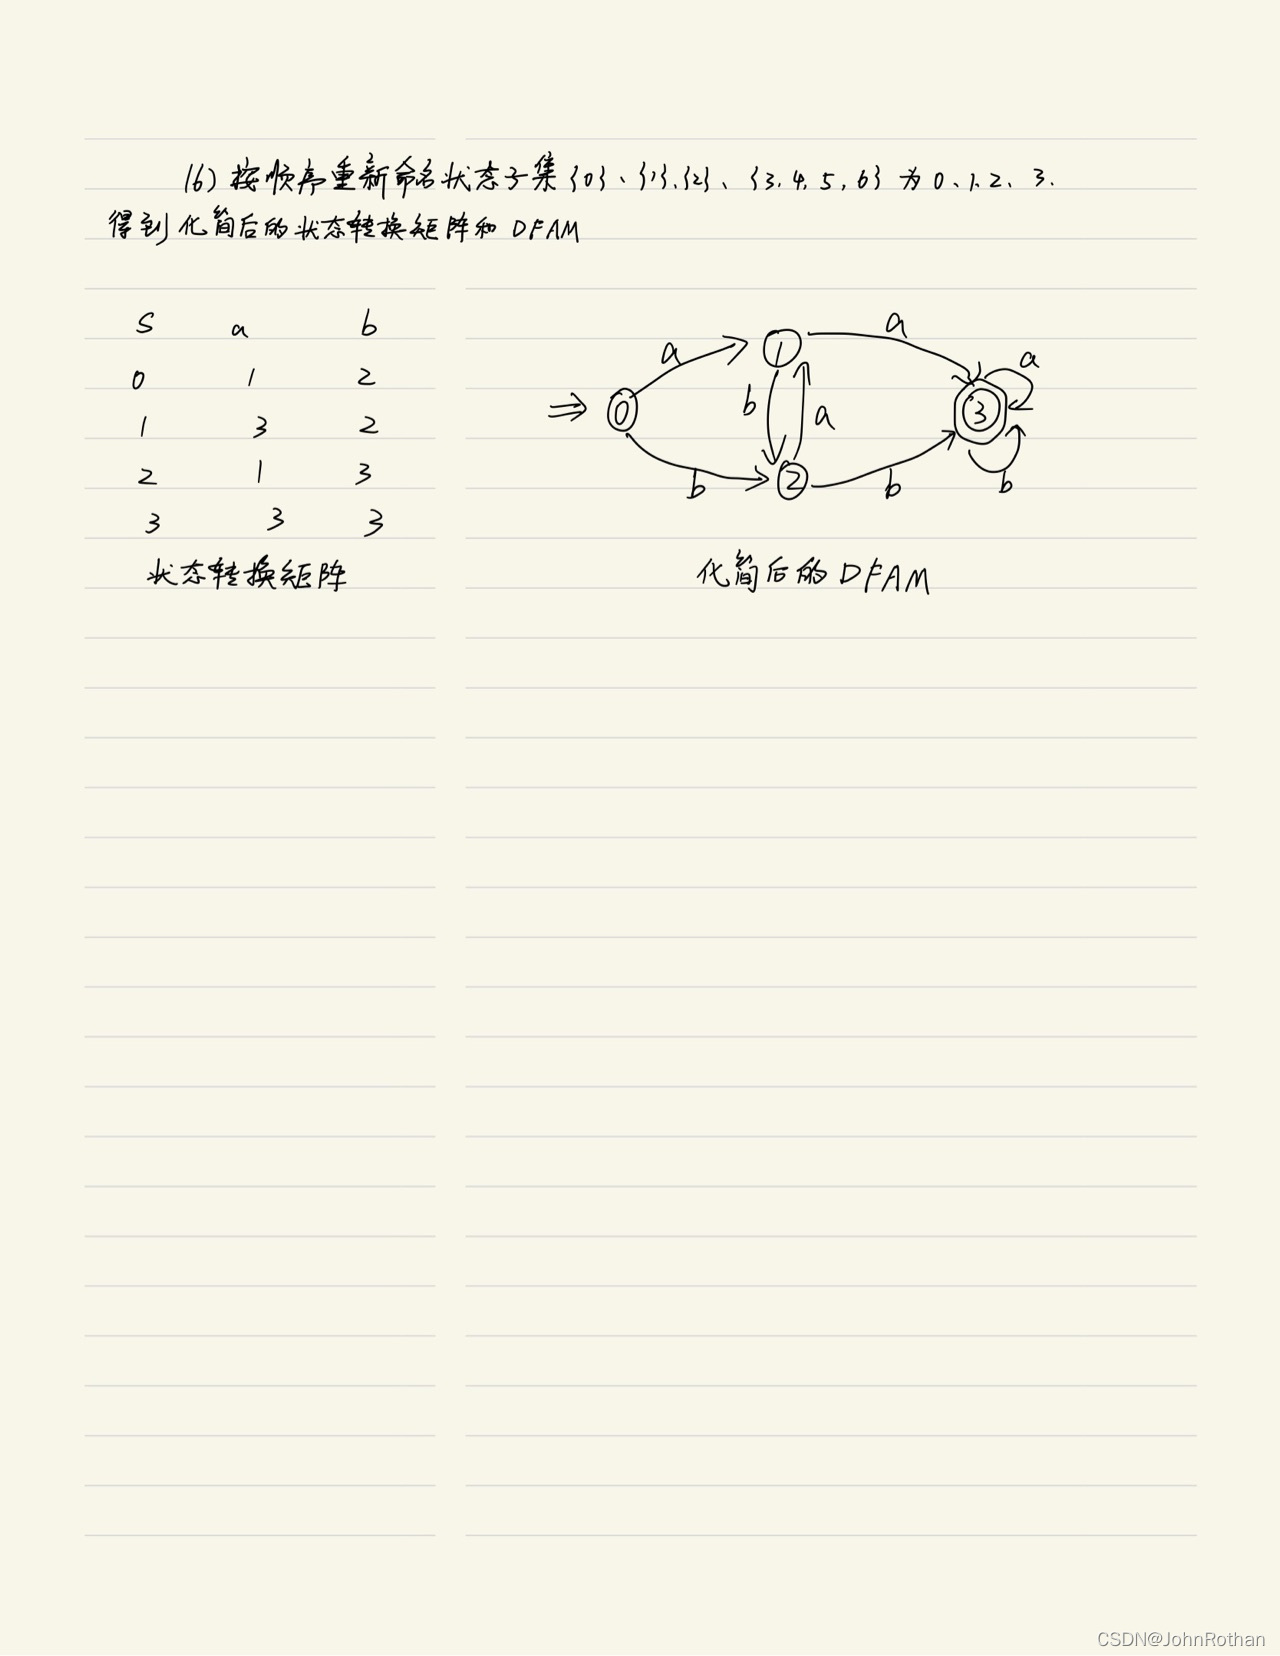 (6) 按顺序重新命名状态子集{0}、{1}、{2}、{3,4,5,6}为0、1、2、3.
得到化简后的状态转换矩阵和DFAM
S a b
0 1 2
1 3 2
2 1 3
3 3 3
状态转换矩阵
a
a
a
1
0
b
a
3
2
b
b
b
化简后的DFAM
CSDN@JohnRothan